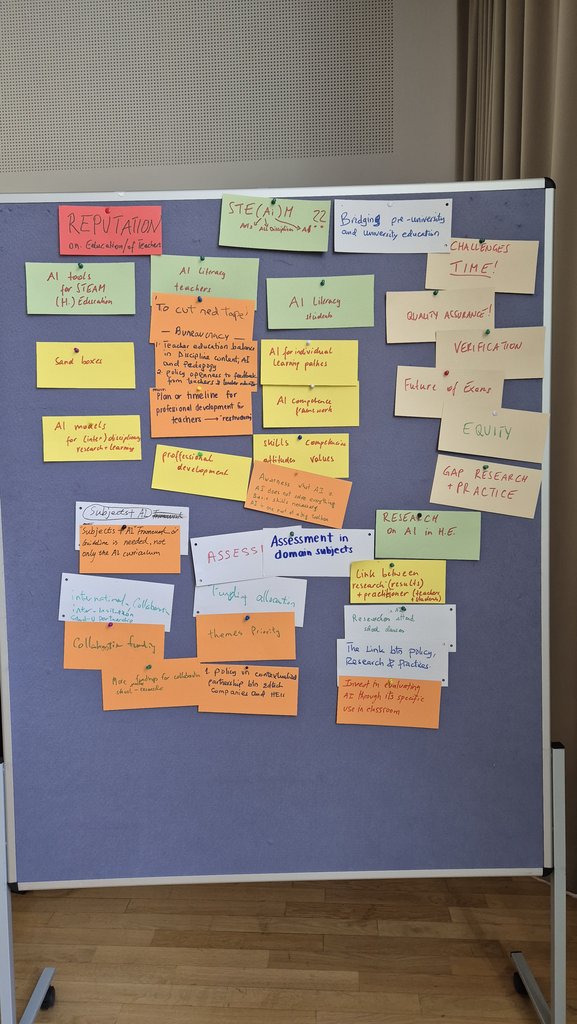 REPUTATION
on Education/of teachers
STE(Ai)M ??
Arts All Disciplines
Bridging pre-university
and university education
CHALLENGES
TIME!
AI tools
for STEAM
(H.) Education
AI Literacy
teachers
AI Literacy
students
QUALITY ASSURANCE!
To cut "red tape"
— Bureaucracy —
1. Teacher education balance
in Discipline content, AI
and Pedagogy
2. policy openness to feedback
from teachers &
Plan or timeline for
professional development for
teachers → restructuring
Sand boxes
AI for individual
learning pathes
VERIFICATION
AI competence
framework
Future of Exams
AI models
for (inter)disciplinary
research + learning
EQUITY
proffessional
development
skills competencies
attitudes values
Awareness what AI is
AI does not solve everything
Basic skills necessary
AI is one tool of a big toolbox
GAP RESEARCH
+ PRACTICE
(Subjects + AI) framework
Subjects + AI framework or
Guideline is needed, not
only the AI curriculum
ASSESS
Assessment in
domain subjects
RESEARCH
on AI in H.E.
Link between
research (results)
+ practitioner (teachers
+ students)
international Collaboration
inter-institution
Funding allocation
Researchers attend
school classes
Collaboration funding
themes Priority
The link btn policy,
Research & Practices
More fundings for collaboration
school -
1. policy on contextualized
partnership btn edtech
companies and HEIs
Invest in evaluating
AI through its specific
use in classroom